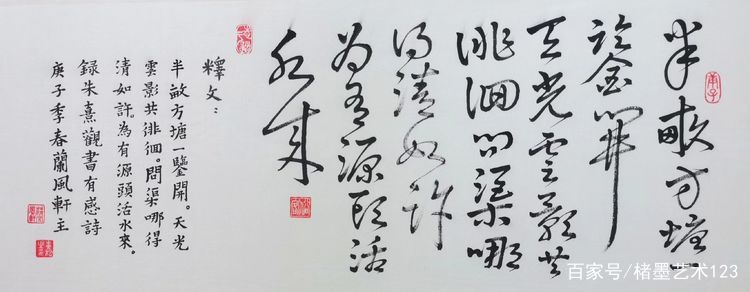 半畝方塘一
鑒開
天光雲影共
徘徊問渠哪
得清如許
為有源頭活
水來
釋文：
半畝方塘一鑒開。天光
雲影共徘徊。問渠哪得
清如許。為有源頭活水來。
錄朱熹觀書有感詩
庚子季春蘭風軒主
庚子
百家号/楮墨艺术123